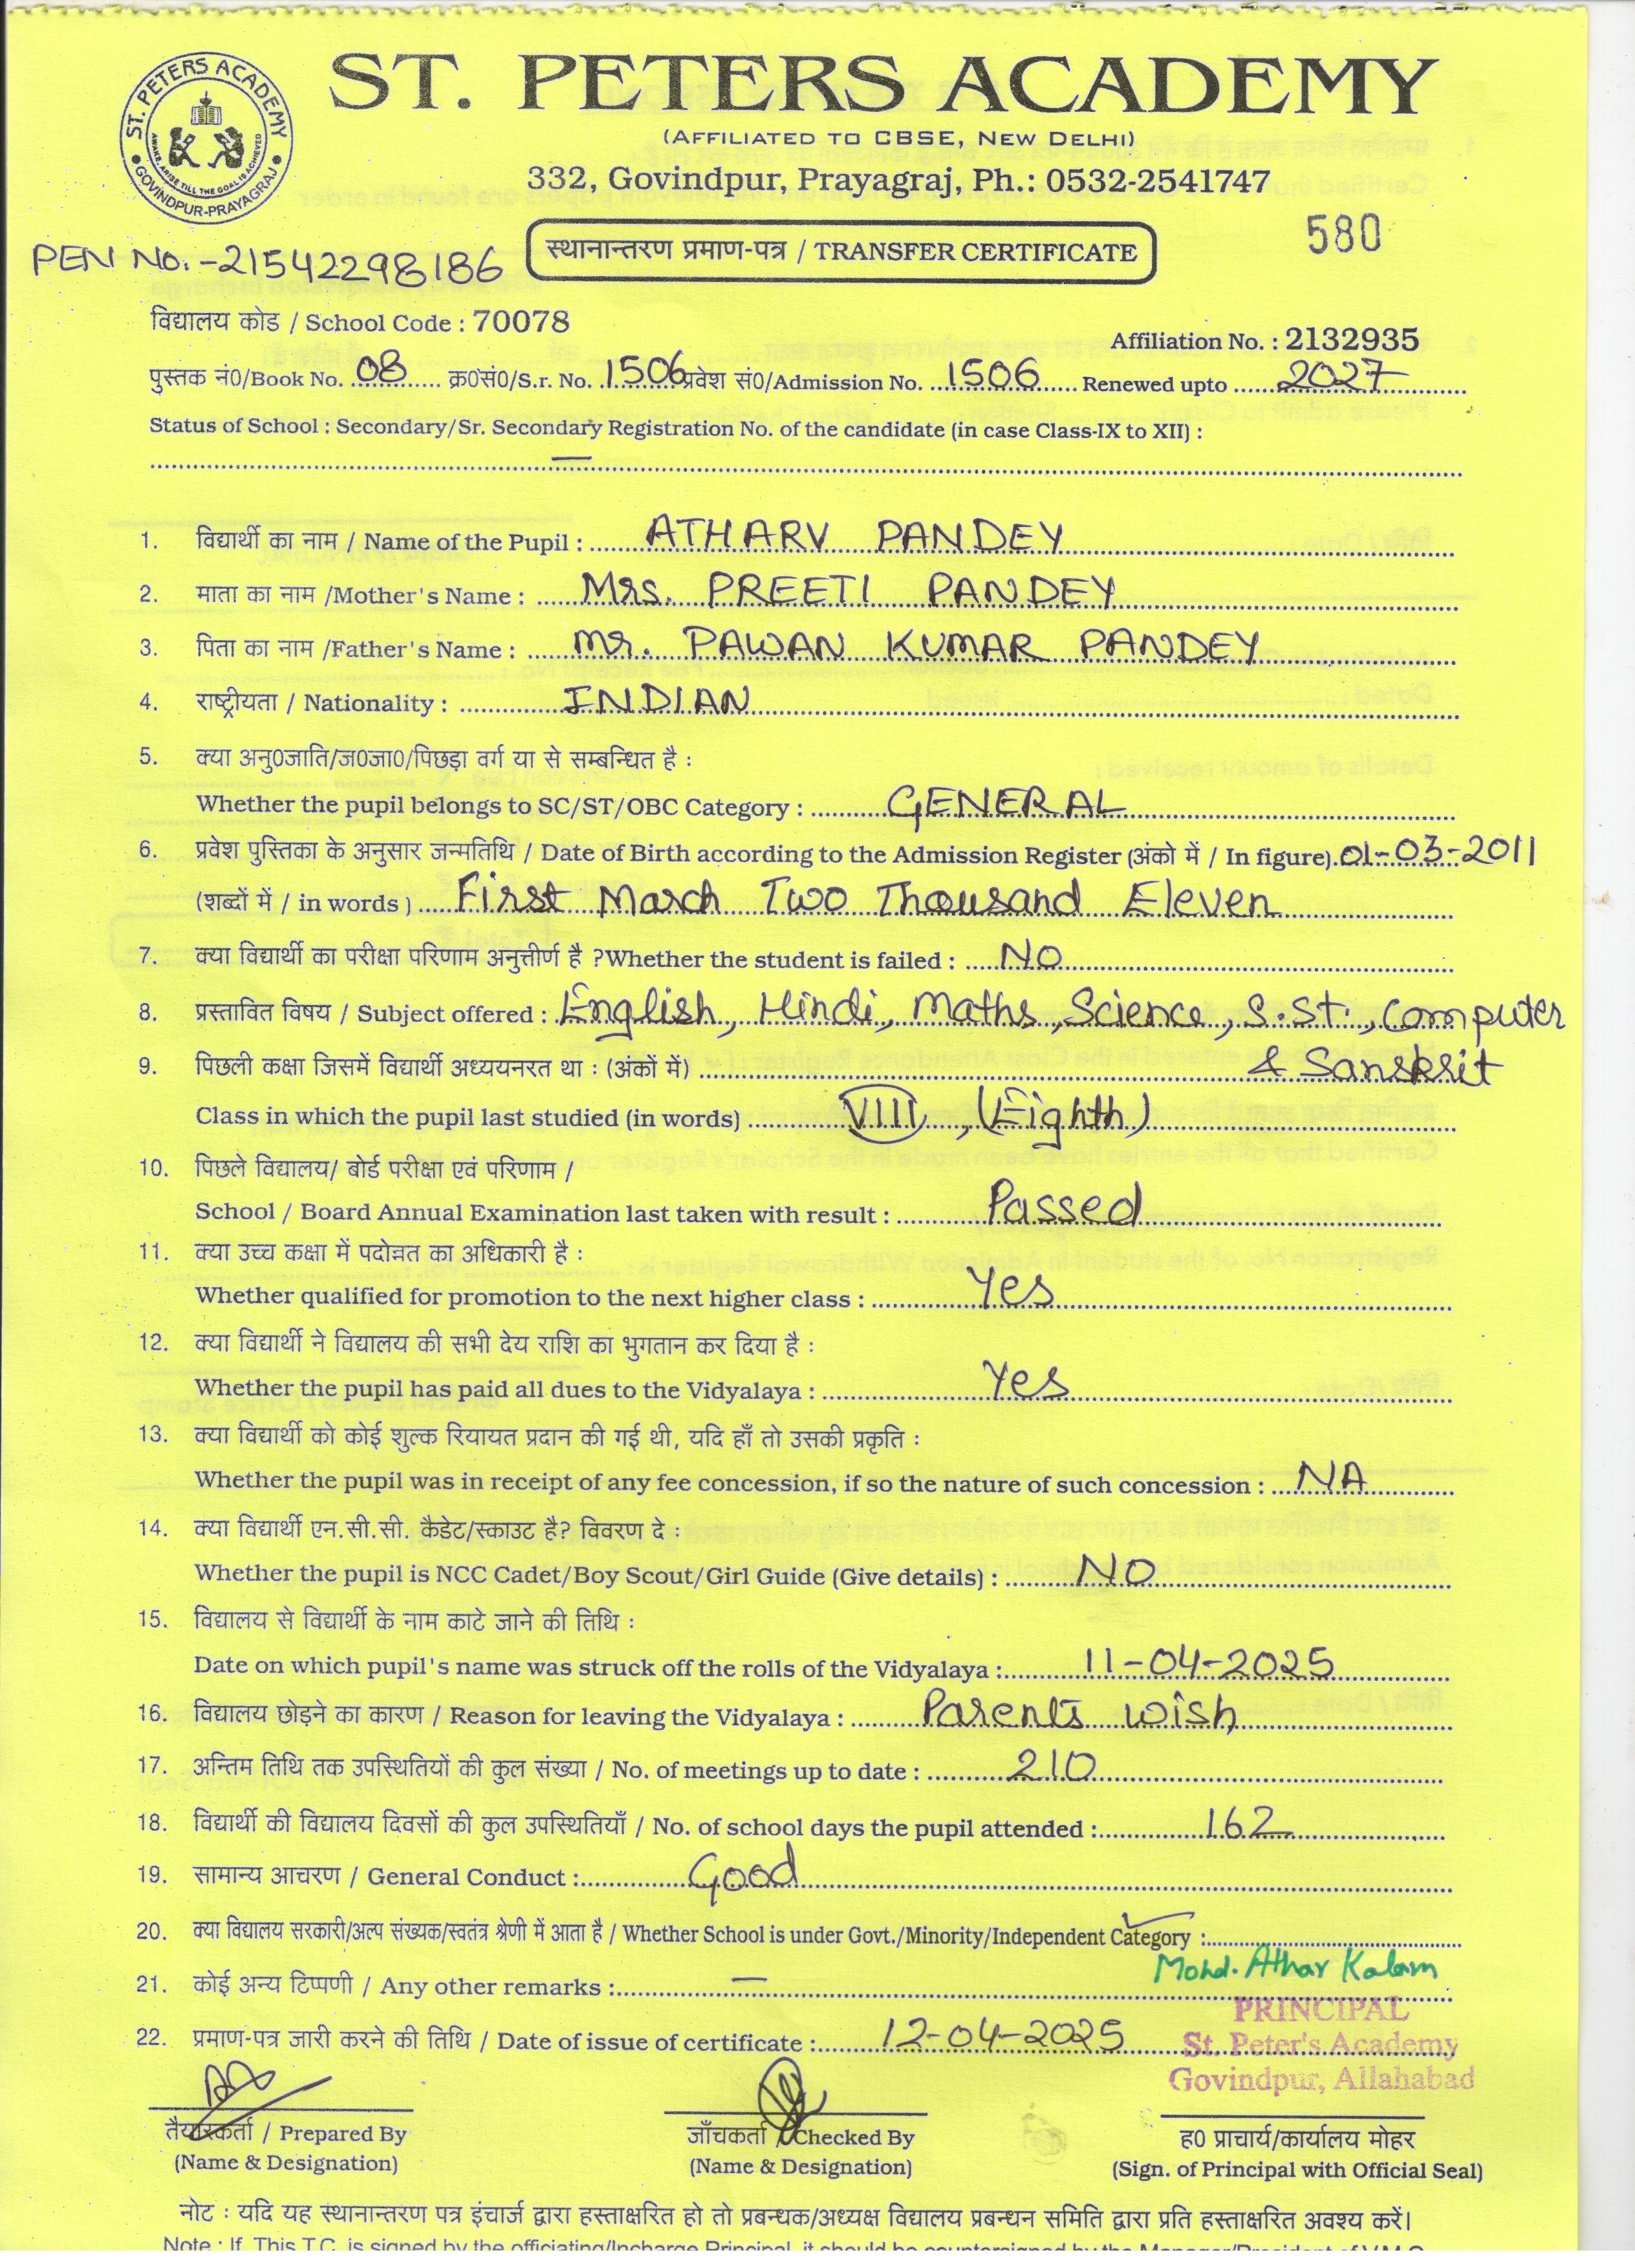 ST. PETERS ACADEMY
ST. PETERS ACADEMY
AWAKE, ARISE TILL THE GOAL IS ACHIEVED
GOVINDPUR-PRAYAGRAJ
(AFFILIATED TO CBSE, NEW DELHI)
332, Govindpur, Prayagraj, Ph.: 0532-2541747
580
PEN No. -21542298186
स्थानान्तरण प्रमाण-पत्र / TRANSFER CERTIFICATE
विद्यालय कोड / School Code : 70078
Affiliation No. : 2132935
पुस्तक नं0/Book No. 08 क्र0सं0/S.r. No. 1506 प्रवेश सं0/Admission No. 1506 Renewed upto 2027
Status of School : Secondary/Sr. Secondary Registration No. of the candidate (in case Class-IX to XII) :
—
1. विद्यार्थी का नाम / Name of the Pupil : ATHARV PANDEY
2. माता का नाम /Mother's Name : Mrs. PREETI PANDEY
3. पिता का नाम /Father's Name : Mr. PAWAN KUMAR PANDEY
4. राष्ट्रीयता / Nationality : INDIAN
5. क्या अनु0जाति/ज0जा0/पिछड़ा वर्ग या से सम्बन्धित है :
Whether the pupil belongs to SC/ST/OBC Category : GENERAL
6. प्रवेश पुस्तिका के अनुसार जन्मतिथि / Date of Birth according to the Admission Register (अंको में / In figure). 01-03-2011
(शब्दों में / in words ) First March Two Thousand Eleven
7. क्या विद्यार्थी का परीक्षा परिणाम अनुत्तीर्ण है ?Whether the student is failed : NO
8. प्रस्तावित विषय / Subject offered : English, Hindi, Maths, Science, S.St., Computer
& Sanskrit
9. पिछली कक्षा जिसमें विद्यार्थी अध्ययनरत था : (अंकों में)
Class in which the pupil last studied (in words) VIII, (Eighth)
10. पिछले विद्यालय/ बोर्ड परीक्षा एवं परिणाम /
School / Board Annual Examination last taken with result : Passed
11. क्या उच्च कक्षा में पदोन्नत का अधिकारी है :
Whether qualified for promotion to the next higher class : Yes
12. क्या विद्यार्थी ने विद्यालय की सभी देय राशि का भुगतान कर दिया है :
Whether the pupil has paid all dues to the Vidyalaya : Yes
13. क्या विद्यार्थी को कोई शुल्क रियायत प्रदान की गई थी, यदि हाँ तो उसकी प्रकृति :
Whether the pupil was in receipt of any fee concession, if so the nature of such concession : NA
14. क्या विद्यार्थी एन.सी.सी. कैडेट/स्काउट है? विवरण दे :
Whether the pupil is NCC Cadet/Boy Scout/Girl Guide (Give details) : NO
15. विद्यालय से विद्यार्थी के नाम काटे जाने की तिथि :
Date on which pupil's name was struck off the rolls of the Vidyalaya : 11-04-2025
16. विद्यालय छोड़ने का कारण / Reason for leaving the Vidyalaya : Parents wish
17. अन्तिम तिथि तक उपस्थितियों की कुल संख्या / No. of meetings up to date : 210
18. विद्यार्थी की विद्यालय दिवसों की कुल उपस्थितियाँ / No. of school days the pupil attended : 162
19. सामान्य आचरण / General Conduct : Good
20. क्या विद्यालय सरकारी/अल्प संख्यक/स्वतंत्र श्रेणी में आता है / Whether School is under Govt./Minority/Independent Category :
Mohd. Athar Kalam
21. कोई अन्य टिप्पणी / Any other remarks : —
PRINCIPAL
St. Peter's Academy
Govindpur, Allahabad
22. प्रमाण-पत्र जारी करने की तिथि / Date of issue of certificate : 12-04-2025
तैयारकर्ता / Prepared By
(Name & Designation)
जाँचकर्ता / Checked By
(Name & Designation)
ह0 प्राचार्य/कार्यालय मोहर
(Sign. of Principal with Official Seal)
नोट : यदि यह स्थानान्तरण पत्र इंचार्ज द्वारा हस्ताक्षरित हो तो प्रबन्धक/अध्यक्ष विद्यालय प्रबन्धन समिति द्वारा प्रति हस्ताक्षरित अवश्य करें।
Note : If. This T.C. is signed by the officiating/Incharge Principal, it should be countersigned by the Manager/President of V.M.C.